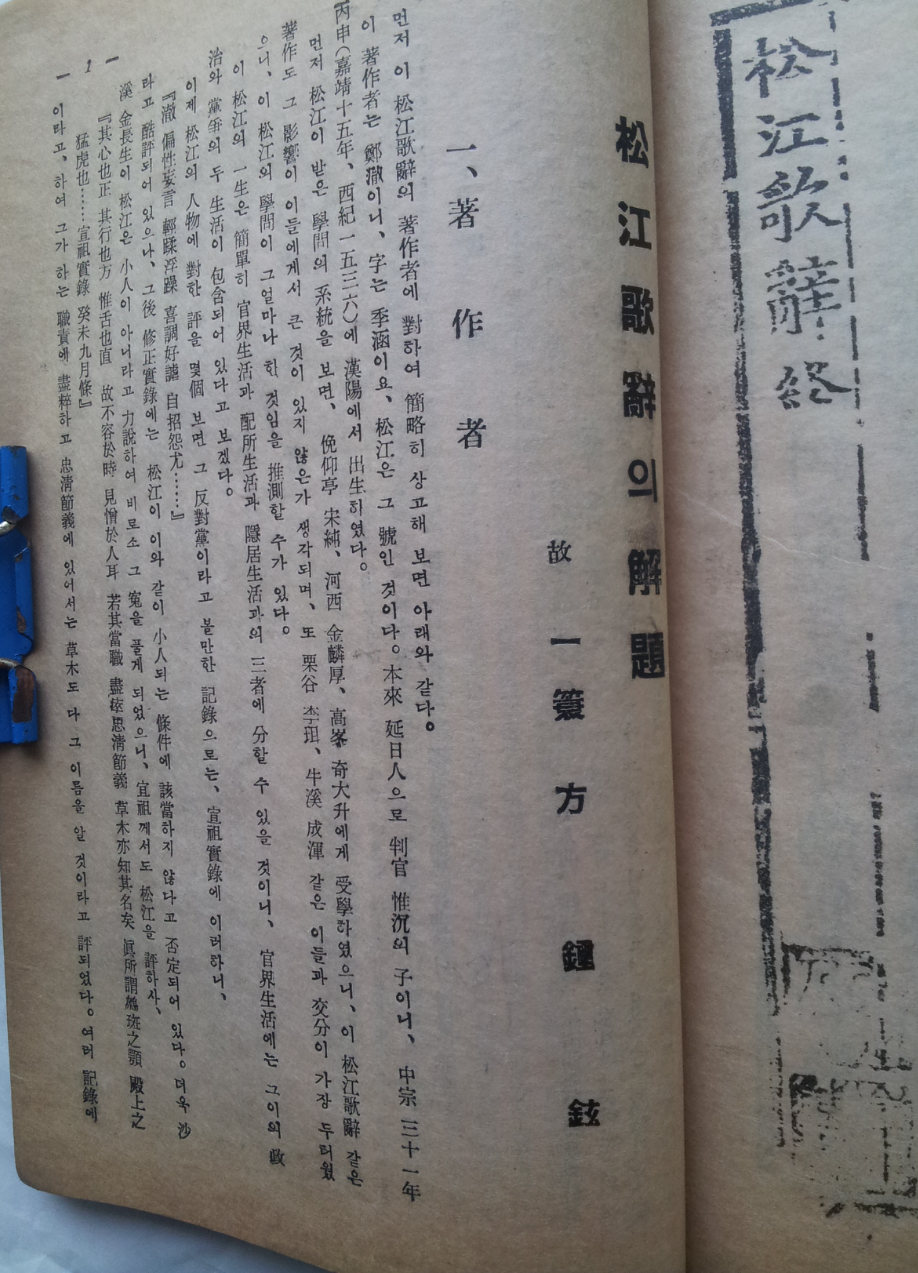 松江歌辭終
松江歌辭의解題
故 一簑 方鍾鉉
一、著作者
먼저 이 松江歌辭의 著作者에 對하여 簡略히 상고해 보면 아래와 같다。
이 著作者는 鄭澈이니、字는 季涵이요、松江은 그 號인 것이다。本來 延日人으로 判官 惟沉의 子이니、中宗 三十一年
丙申(嘉靖十五年、西紀一五三六)에 漢陽에서 出生히였다。
먼저 松江이 받은 學問의 系統을 보면、俛仰亭 宋純、河西 金麟厚、高峯 奇大升에게 受學하였으니、이 松江歌辭 같은
著作도 그 影響이 이들에게서 큰 것이 있지 않은가 생각되며、또 栗谷 李珥、牛溪 成渾 같은 이들과 交分이 가장 두터웠
으니、이 松江의 學問이 그얼마나 한 것임을 推測할 수가 있다。
이 松江의 一生은 簡單히 官界生活과 配所生活과 隱居生活과의 三者에 分할 수 있을 것이니、官界生活에는 그이의 政
治와 黨爭의 두 生活이 包含되어 있다고 보겠다。
이제 松江의 人物에 對한 評을 몇個 보면 그 反對黨이라고 볼만한 記錄으로는、宣祖實錄에 이러하니、
『澈 偏性妄言 輕蹂浮躁 喜調好謔 自招怨尤……』
라고 酷評되어 있으나、그後 修正實錄에는 松江이 이와 같이 小人되는 條件에 該當하지 않다고 否定되어 있다。더욱 沙
溪 金長生이 松江은 小人이 아니라고 力說하여 비로소 그 寃을 풀게 되었으니、宣祖께서도 松江을 評하사、
『其心也正 其行也方 惟舌也直 故不容於時 見憎於人耳 若其當職 盡瘁思淸節義 草木亦知其名矣 眞所謂鵷班之鶚 殿上之
猛虎也……宣祖實錄 癸未九月條』
이라고、하여 그가 하는 職責에 盡粹하고 忠淸節義에 있어서는 草木도 다 그 이름을 알 것이라고 評되었다。여러 記錄에
— 1 —